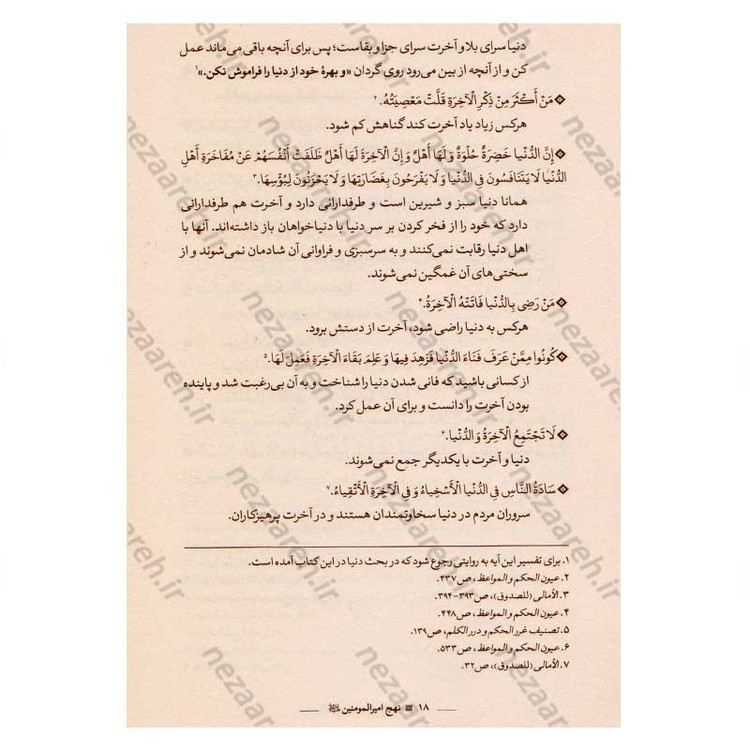 دنیا سرای بلا و آخرت سرای جزا و بقاست؛ پس برای آنچه باقی می‌ماند عمل
کن و از آنچه از بین می‌رود روی گردان «و بهرهٔ خود از دنیا را فراموش نکن.»۱
❖ مَنْ أَكْثَرَ مِنْ ذِكْرِ الْآخِرَةِ قَلَّتْ مَعْصِيَتُهُ.۲
هرکس زیاد یاد آخرت کند گناهش کم شود.
❖ إِنَّ الدُّنْيَا خَضِرَةٌ حُلْوَةٌ وَ لَهَا أَهْلٌ وَ إِنَّ الْآخِرَةَ لَهَا أَهْلٌ ظَلَفَتْ أَنْفُسَهُمْ عَنْ مُفَاخَرَةِ أَهْلِ
الدُّنْيَا لَا يَتَنَافَسُونَ فِي الدُّنْيَا وَ لَا يَفْرَحُونَ بِغَضَارَتِهَا وَ لَا يَحْزَنُونَ لِبُؤْسِهَا.۳
همانا دنیا سبز و شیرین است و طرفدارانی دارد و آخرت هم طرفدارانی
دارد که خود را از فخر کردن بر سر دنیا با دنیاخواهان باز داشته‌اند. آنها با
اهل دنیا رقابت نمی‌کنند و به سرسبزی و فراوانی آن شادمان نمی‌شوند و از
سختی‌های آن غمگین نمی‌شوند.
❖ مَنْ رَضِيَ بِالدُّنْيَا فَاتَتْهُ الْآخِرَةُ.۴
هرکس به دنیا راضی شود، آخرت از دستش برود.
❖ كُونُوا مِمَّنْ عَرَفَ فَنَاءَ الدُّنْيَا فَزَهِدَ فِيهَا وَ عَلِمَ بَقَاءَ الْآخِرَةِ فَعَمِلَ لَهَا.۵
از کسانی باشید که فانی شدن دنیا را شناخت و به آن بی‌رغبت شد و پاینده
بودن آخرت را دانست و برای آن عمل کرد.
❖ لَا تَجْتَمِعُ الْآخِرَةُ وَ الدُّنْيَا.۶
دنیا و آخرت با یکدیگر جمع نمی‌شوند.
❖ سَادَةُ النَّاسِ فِي الدُّنْيَا الْأَسْخِيَاءُ وَ فِي الْآخِرَةِ الْأَتْقِيَاءُ.۷
سروران مردم در دنیا سخاوتمندان هستند و در آخرت پرهیزکاران.
۱. برای تفسیر این آیه به روایتی رجوع شود که در بحث دنیا در این کتاب آمده است.
۲. عیون الحکم و المواعظ، ص۴۳۷.
۳. الأمالی (للصدوق)، ص۳۹۳-۳۹۴.
۴. عیون الحکم و المواعظ، ص۴۴۸.
۵. تصنیف غرر الحکم و درر الکلم، ص۱۳۹.
۶. عیون الحکم و المواعظ، ص۵۳۳.
۷. الأمالی (للصدوق)، ص۳۲.
۱۸ نهج امیرالمومنین ﷺ
nezaareh.ir